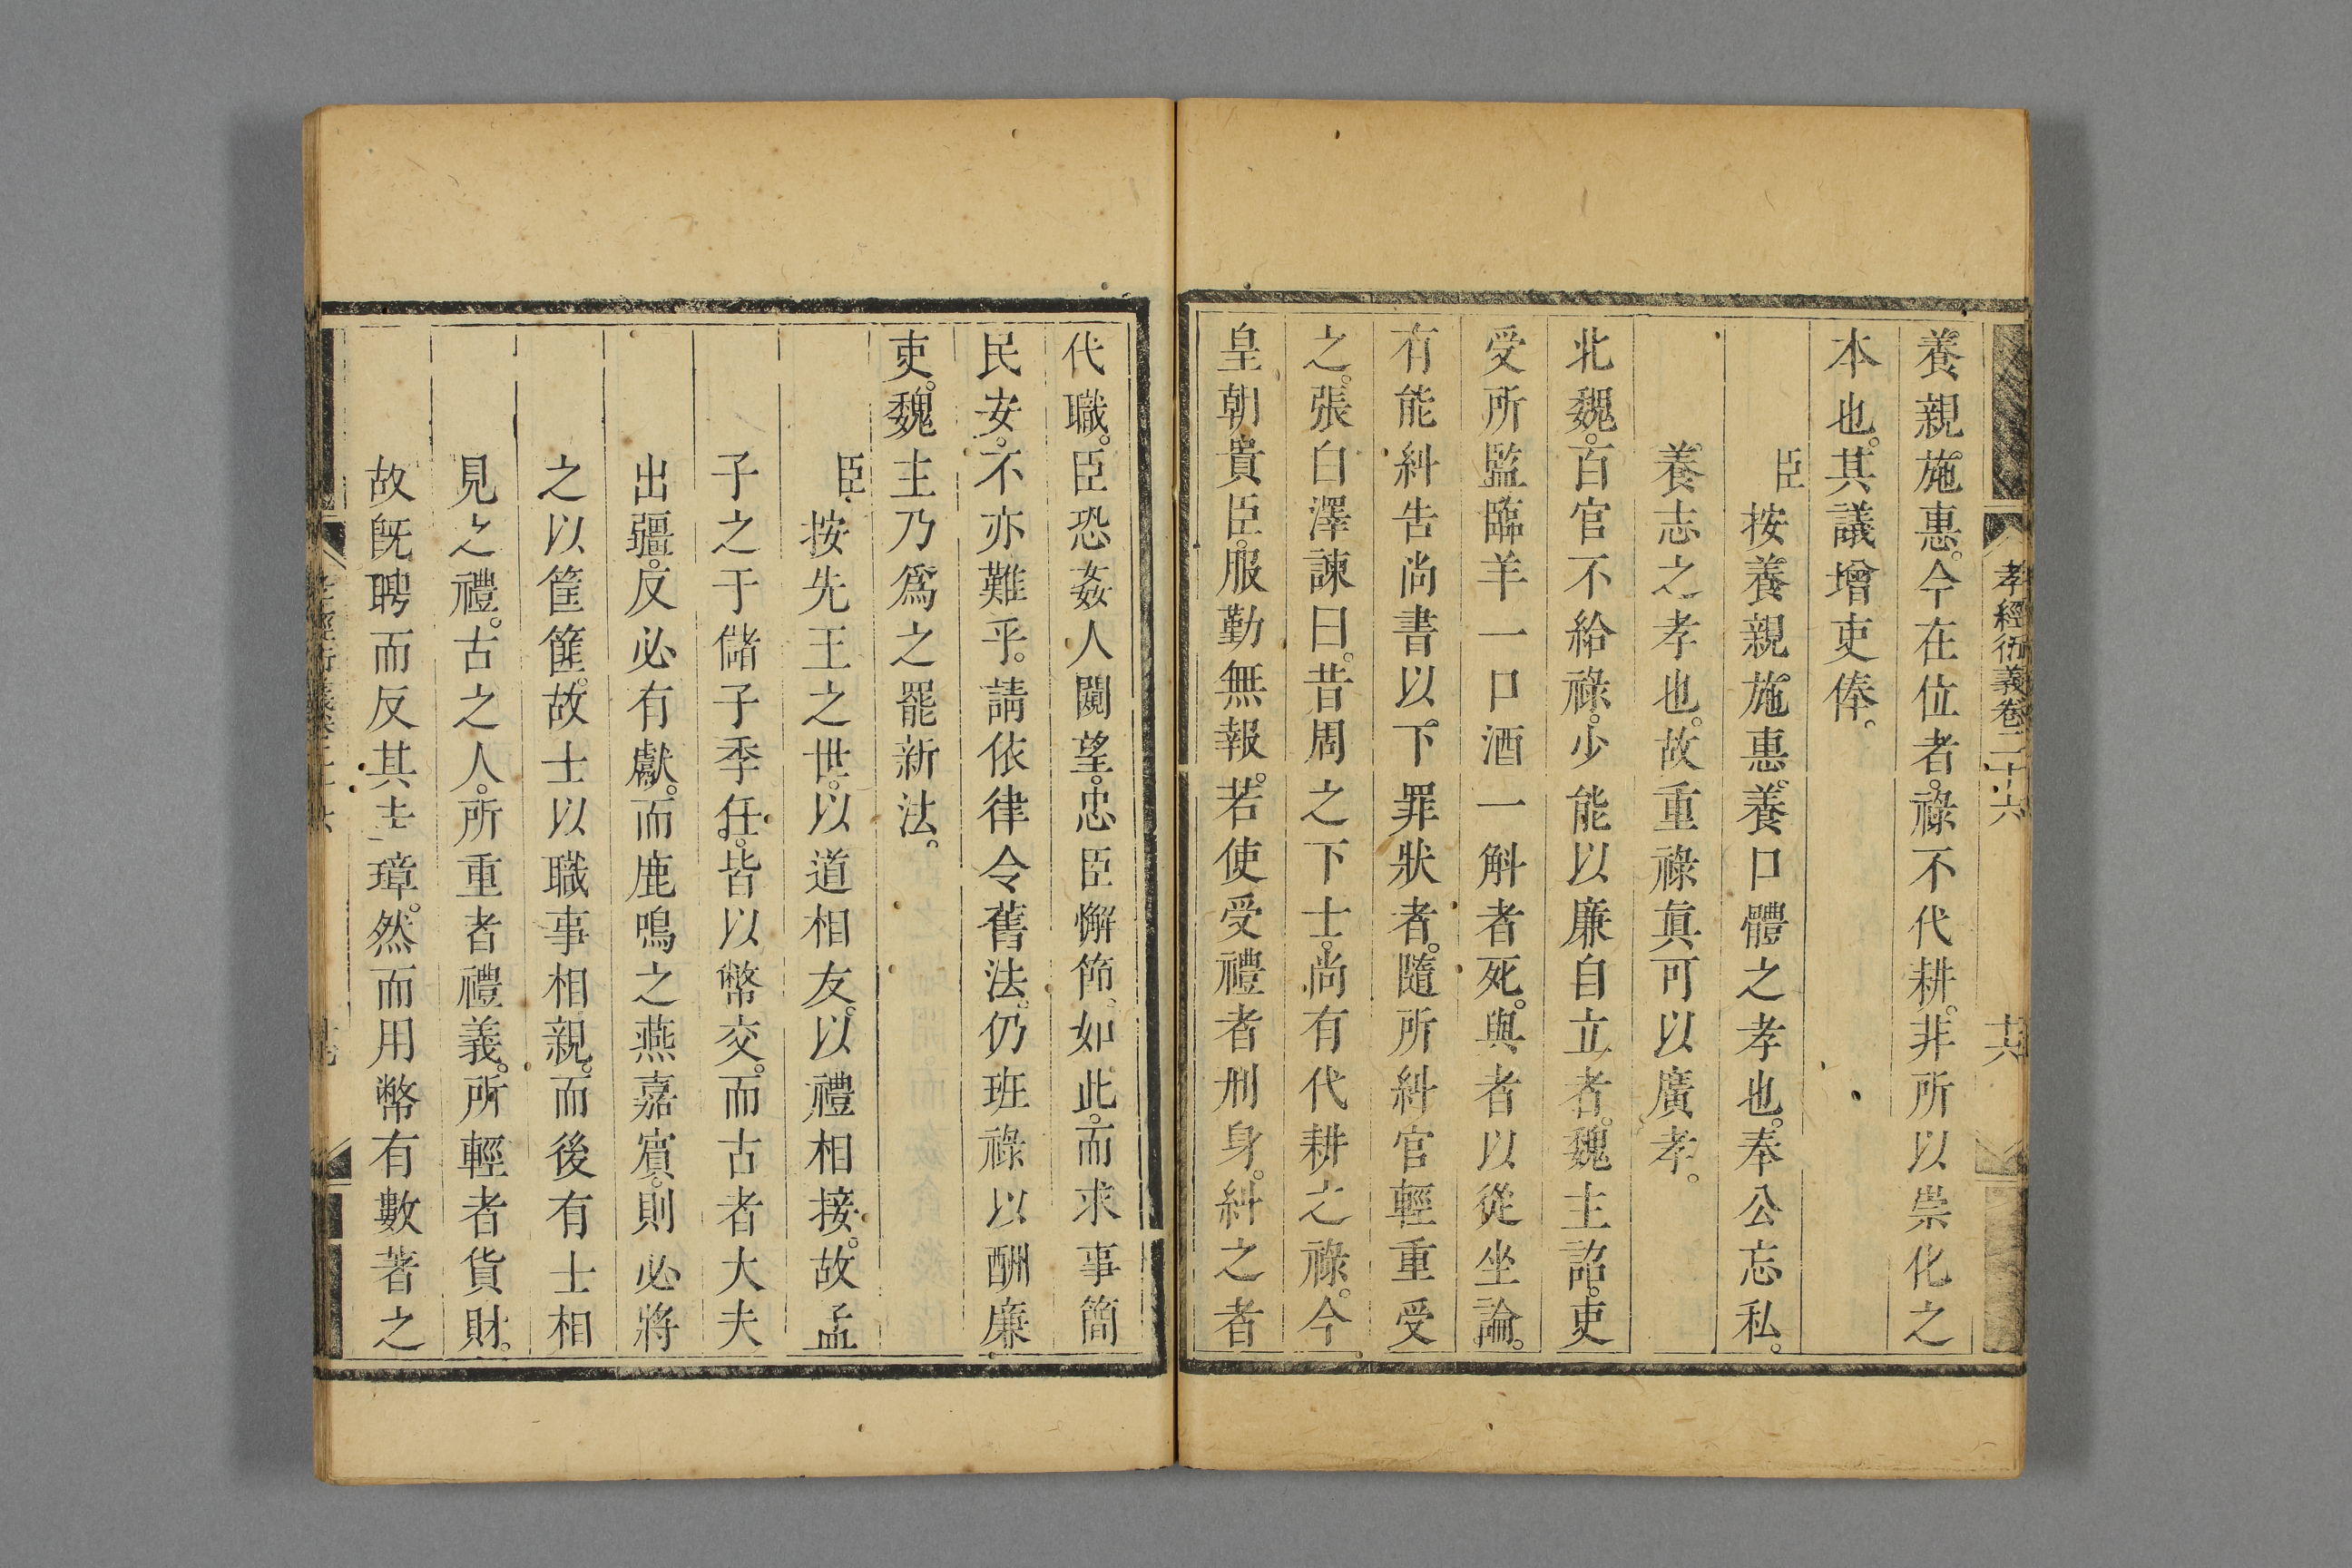 孝經衍義卷二十六
十六
養親施惠。今在位者。祿不代耕。非所以崇化之
本也。其議增吏俸。
臣按養親施惠。養口體之孝也。奉公忘私。
養志之孝也。故重祿眞可以廣孝。
北魏。百官不給祿。少能以廉自立者。魏主詔。吏
受所監臨羊一口酒一斛者死。與者以從坐論。
有能糾告尚書以下罪狀者。隨所糾官輕重受
之。張白澤諫曰。昔周之下士。尚有代耕之祿。今
皇朝貴臣。服勤無報。若使受禮者刑身。糾之者
代職。臣恐姦人闚望。忠臣懈節。如此。而求事簡
民安。不亦難乎。請依律令舊法。仍班祿以酬廉
吏。魏主乃爲之罷新法。
臣按先王之世。以道相友。以禮相接。故孟
子之于儲子季任。皆以幣交。而古者大夫
出疆。反必有獻。而鹿鳴之燕嘉賓。則必將
之以筐篚。故士以職事相親。而後有士相
見之禮。古之人。所重者禮義。所輕者貨財。
故旣聘而反其圭璋。然而用幣有數著之